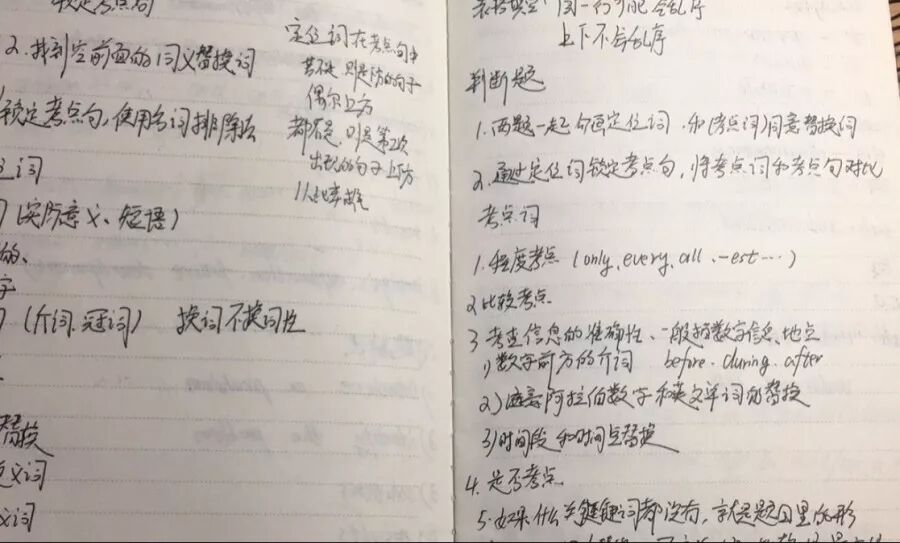 锁定考点句
2. 找到空前面的词义替换词
锁定考点句,使用名词排除法
词
(实际意义、短语)
的、
字
(介词、冠词) 换词不换词性
替换
近义词
义词
定位词在考点句中
若不是 则是下方的句子
偶尔上方
都不是,则是第2次
出现的句子上方
表格填空 同一行可能会乱序
上下不会乱序
判断题
1. 两题一起 勾画定位词 和(考点词)同意替换词
2. 通过定位词锁定考点句,将考点词和考点句对比
考点词
1. 程度考点 (only, every, all 、-est …)
2 比较考点
3 考查信息的准确性、一般按数字信息、地点
1) 数字前方的介词 before. during. after
2) 注意阿拉伯数字和英文单词的替换
3) 时间段和时间点替换
4. 是否考点
5. 如果什么关键词都没有,就是题目里的形